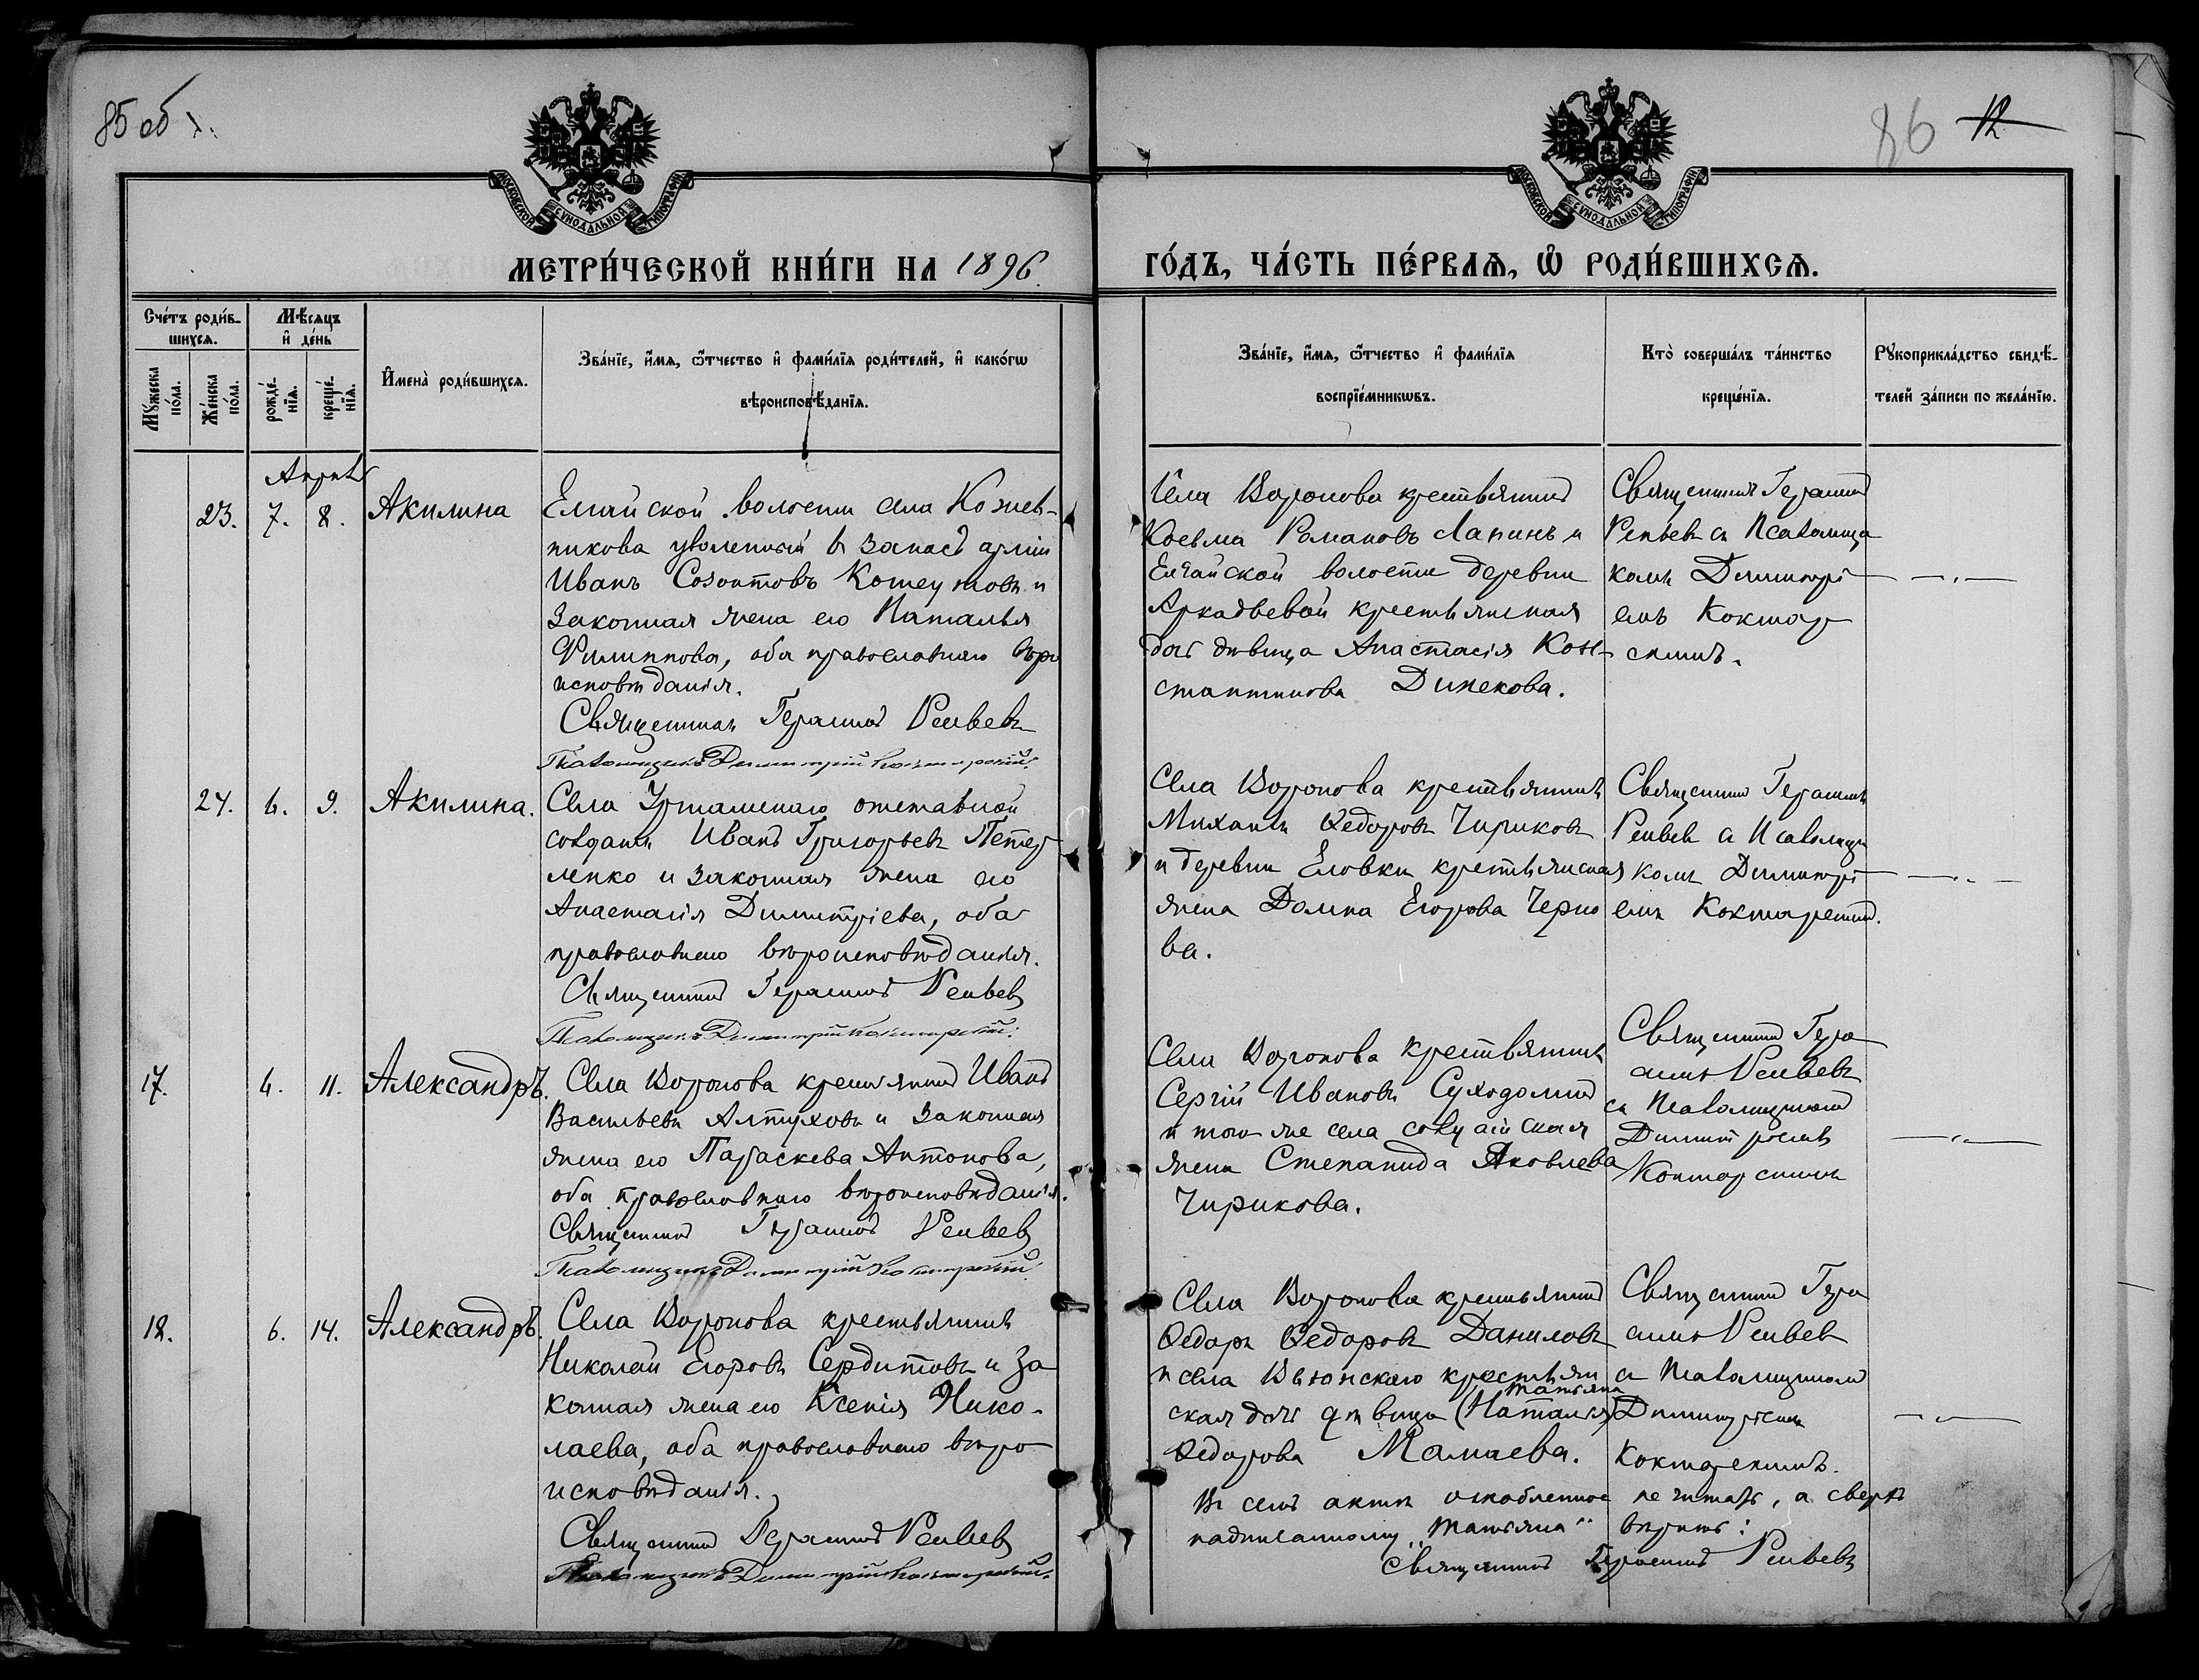 85 об
86 12
МОСКОВСКОЙ СѴНОДАЛЬНОЙ ТИПОГРАФІИ
МОСКОВСКОЙ СѴНОДАЛЬНОЙ ТИПОГРАФІИ
МЕТРИ́ЧЕСКОЙ КНИ́ГИ НА 1896.
ГО́ДЪ, ЧА́СТЬ ПЕ́РВАѦ, Ѽ РОДИ́ВШИХСѦ.
Сче́тъ роди́в-
шихсѧ.
Мꙋ́жеска
по́ла.
Же́нска
по́ла.
Мѣ́сѧцъ
и҆ де́нь
рожде́-
нїѧ.
креще́-
нїѧ.
И҆мена̀ роди́вшихсѧ.
Зва́нїе, и҆́мѧ, ѻ҆́тчество и҆ фами́лїѧ роди́телей, и҆ како́гѡ
вѣроисповѣ́данїѧ.
Зва́нїе, и҆́мѧ, ѻ҆́тчество и҆ фами́лїѧ
воспрїе́мникѡвъ.
Кто̀ соверша́лъ та́инство
креще́нїѧ.
Рꙋкоприкла́дство свидѣ́-
телей за́писи по жела́нїю.
Апрѣль
23. 7. 8. Акилина
Елгайской волости села Кожев-
никова уволенный въ запасъ арміи
Иванъ Созонтовъ и
законная жена его Наталья
Филиппова, оба православнаго вѣро
исповѣданія.
Священникъ Герасимъ Репьевъ
Псаломщикъ Димитрій Коктарскій.
Села Воронова крестьянинъ
Косьма Романовъ Лапинъ и
Елгайской волости деревни
Аркадьевой крестьянская
дочь дѣвица Анастасія Кон-
стантинова Динекова.
Священникъ Герасимъ
Репьевъ съ Псаломщи
комъ Димитрі
емъ Коктар
скимъ.
24. 6. 9. Акилина.
Села Уртамскаго отставной
солдатъ Иванъ Григорьевъ Петер
ленко и законная жена его
Анастасія Димитріева, оба
православнаго вѣроисповѣданія.
Священникъ Герасимъ Репьевъ
Псаломщикъ Димитрій Коктарскій.
Села Воронова крестьянинъ
Михаилъ Ѳедоровъ Чириковъ
и деревни Еловки крестьянская
жена Домна Егорова Черно
ва.
Священникъ Герасимъ
Репьевъ съ Псаломщи
комъ Димитрі
емъ Коктарскимъ.
17. 6. 11. Александръ.
Села Воронова крестьянинъ Иванъ
Васильевъ Алтуховъ и законная
жена его Параскева Антонова,
оба православнаго вѣроисповѣданія.
Священникъ Герасимъ Репьевъ
Псаломщикъ Димитрій Коктарскій.
Села Воронова крестьянинъ
Сергій Ивановъ
и того же села солдатская
жена Степанида Яковлева
Чирикова.
Священникъ Гера
симъ Репьевъ
съ Псаломщикомъ
Димитріемъ
Коктарскимъ
18. 6. 14. Александръ.
Села Воронова крестьянинъ
Николай Егоровъ Сердитовъ и за
конная жена его Ксенія Нико-
лаева, оба православнаго вѣро
исповѣданія.
Священникъ Герасимъ Репьевъ
Псаломщикъ Димитрій Коктарскій.
Села Воронова крестьянинъ
Ѳедоръ Ѳедоровъ Даниловъ
и села Вьюнскаго крестьян
Татьяна
ская дочь дѣвица (Наталія)
Ѳедорова Мамаева.
Священникъ Гера
симъ Репьевъ
съ Псаломщикомъ
Димитріемъ
Коктарскимъ.
Въ семъ актѣ оскобленное не читать, а сверхъ
надписанному „Татьяна“ вѣрить:
Священникъ Герасимъ Репьевъ